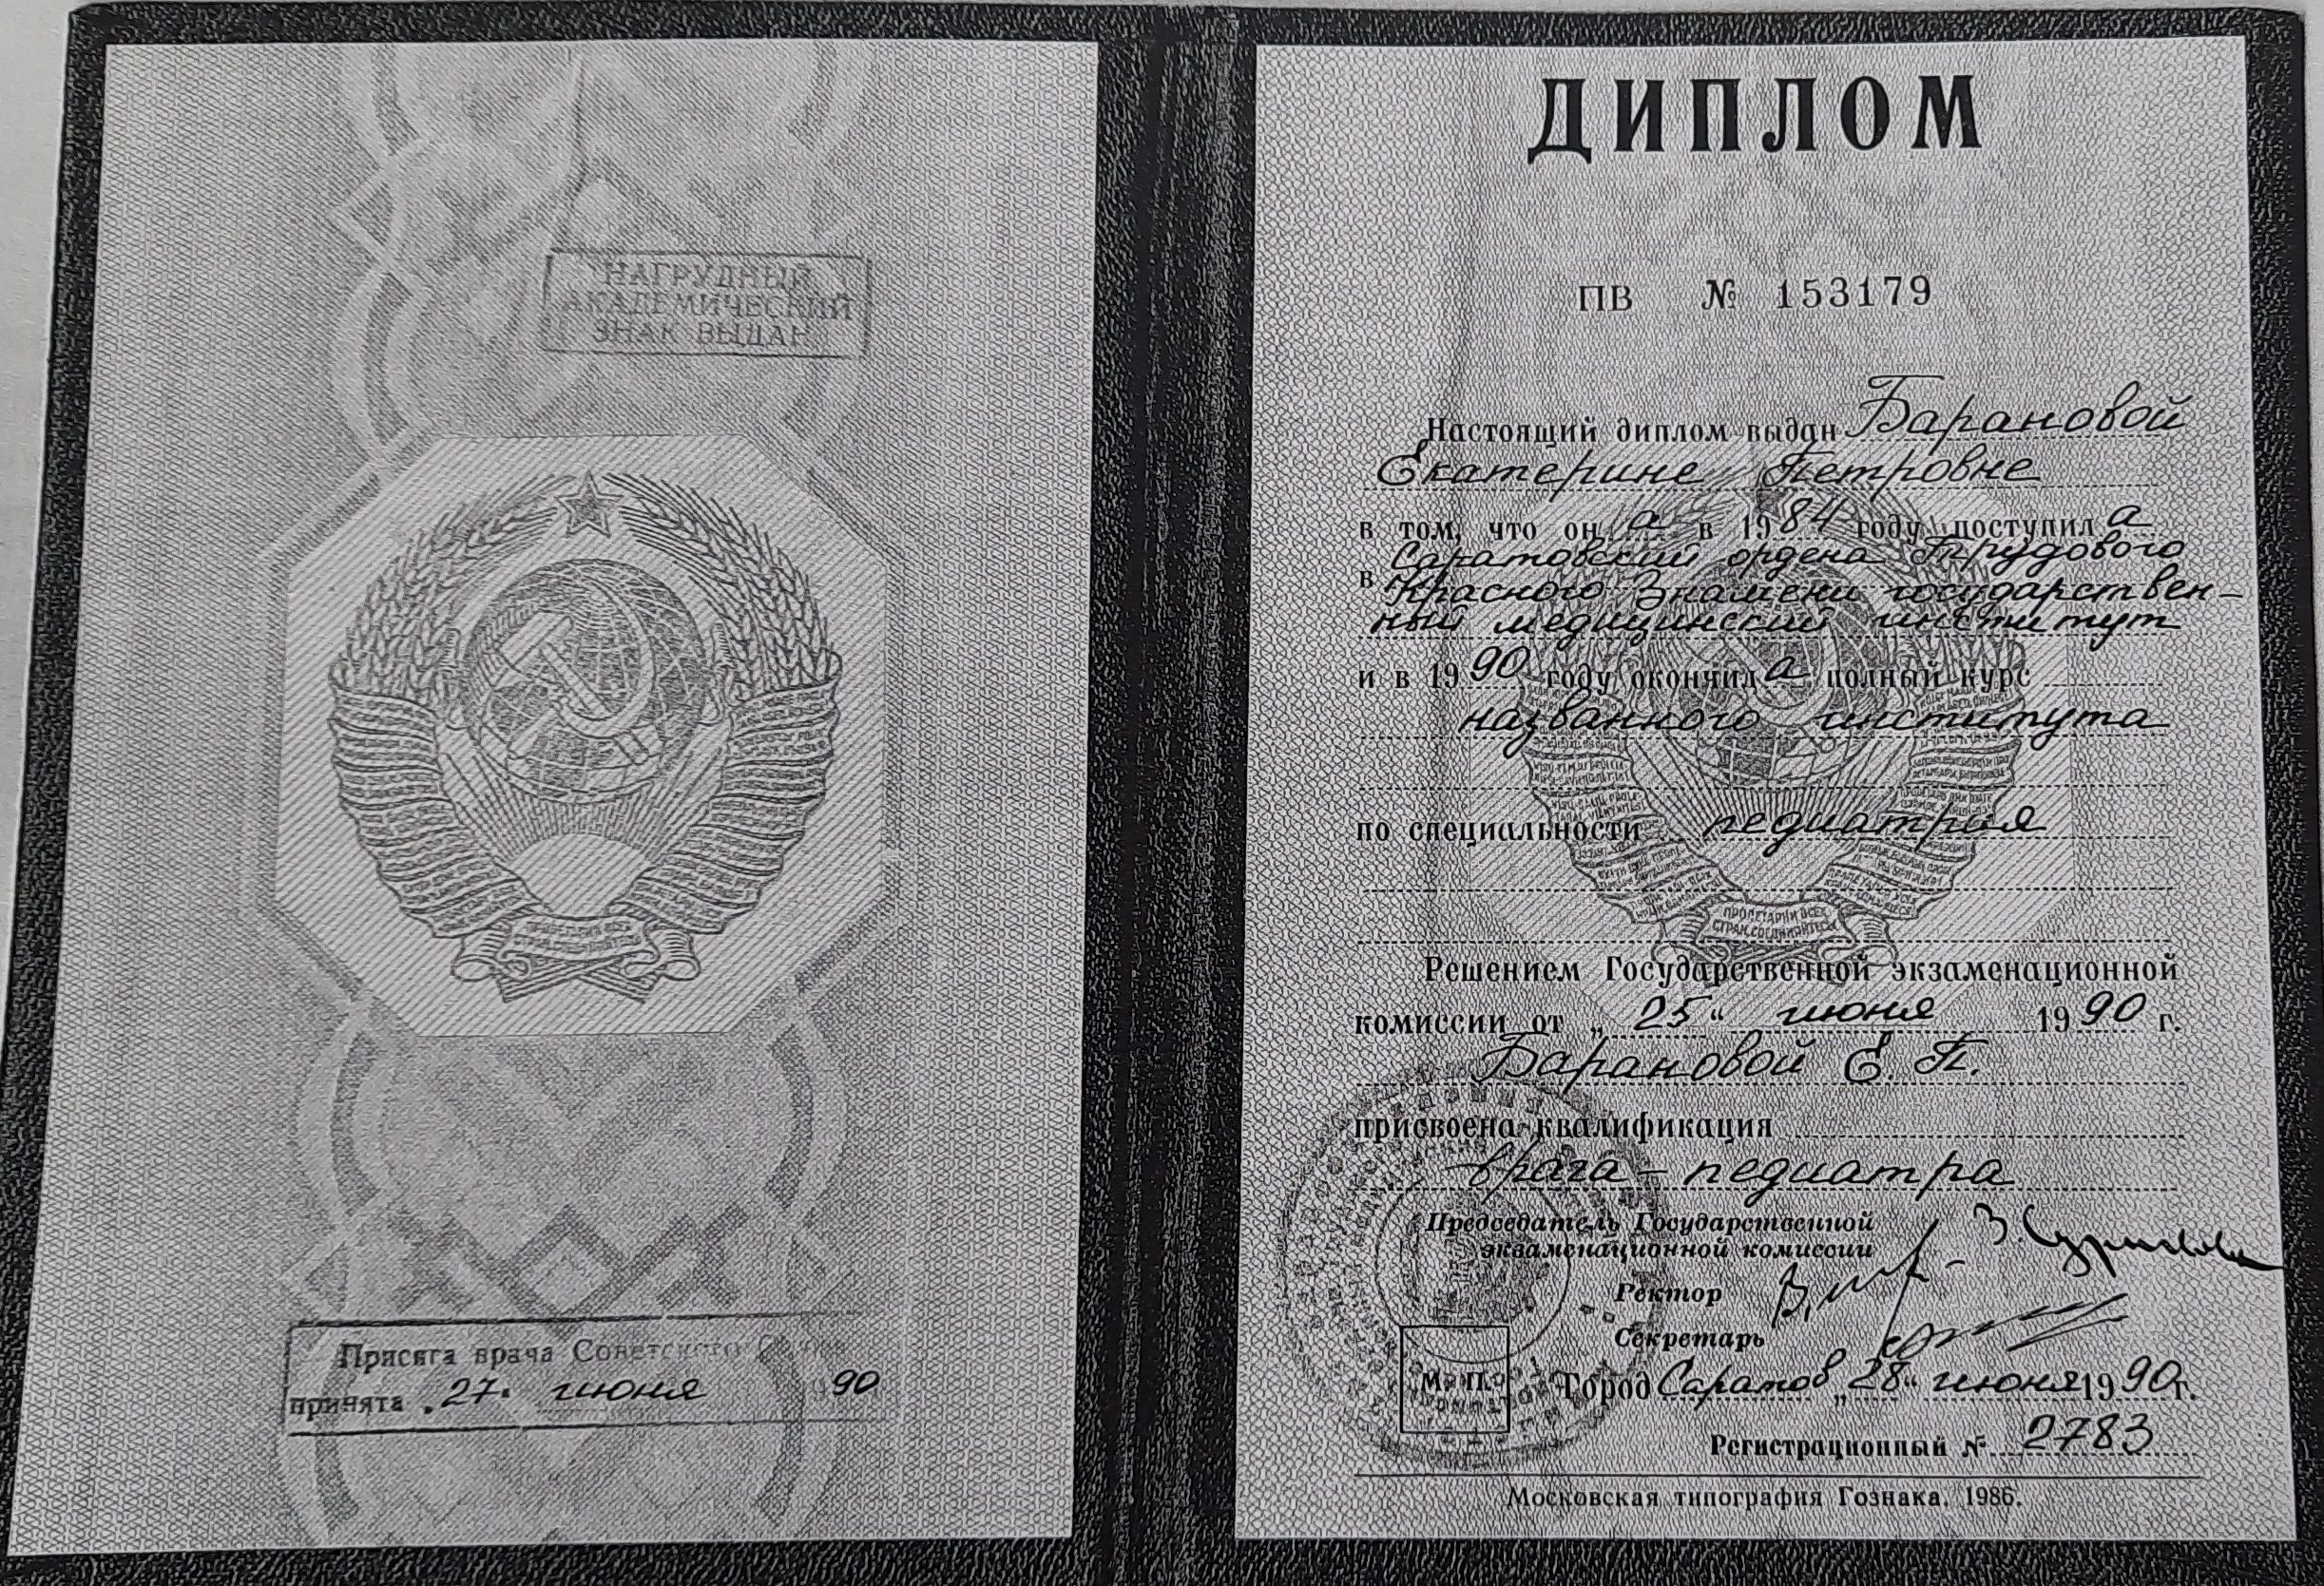 НАГРУДНЫЙ
АКАДЕМИЧЕСКИЙ
ЗНАК ВЫДАН
Присяга врача Советского
принята „27. июня 90
ДИПЛОМ
ПВ № 153179
Настоящий диплом выдан Барановой
Екатерине Петровне
в том, что он а в 1984 году поступил а
Саратовский ордена Трудового
в Красного Знамени государствен-
ный медицинский институт
и в 1990 году окончил а полный курс
названного института
по специальности педиатрия
ПРОЛЕТАРИИ ВСЕХ
СТРАН, СОЕДИНЯЙТЕСЬ
Решением Государственной экзаменационной
комиссии от „25“ июня 1990 г.
Барановой Е. П.
присвоена квалификация
врача-педиатра
Председатель Государственной
экзаменационной комиссии
Ректор
Секретарь
М. П.
Город Саратов „28“ июня 1990г.
Регистрационный № 2783
Московская типография Гознака. 1986.